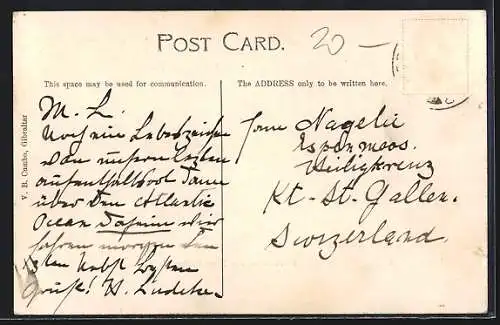 POST CARD.
20 —
This space may be used for communication.
The ADDRESS only to be written here.
V. B. Cumbo, Gibraltar
M. L.
Noch ein Lebenszeichen
von unserm letzten
aufenthaltsort Dann
über Den Atlantic
Ocean Daheim wir
fahren morgen den
ten Nebst besten
Gruß! H.
Nagelie
Espenmoos.
Heiligkreuz
Kt. St. Gallen.
Swizerland.